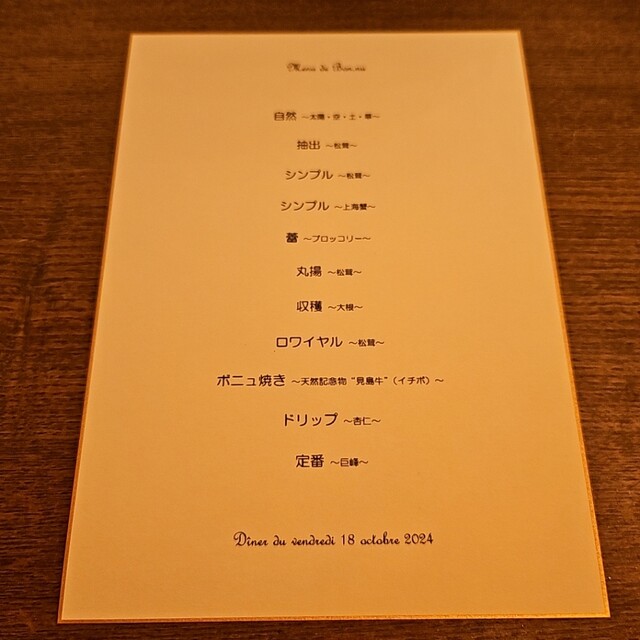 Menu de Bon.nu
自然 ～太陽・空・土・草～
抽出 ～松茸～
シンプル ～松茸～
シンプル ～上海蟹～
蕾 ～ブロッコリー～
丸揚 ～松茸～
収穫 ～大根～
ロワイヤル ～松茸～
ボニュ焼き ～天然記念物 “見島牛”（イチボ）～
ドリップ ～杏仁～
定番 ～巨峰～
Dîner du vendredi 18 octobre 2024